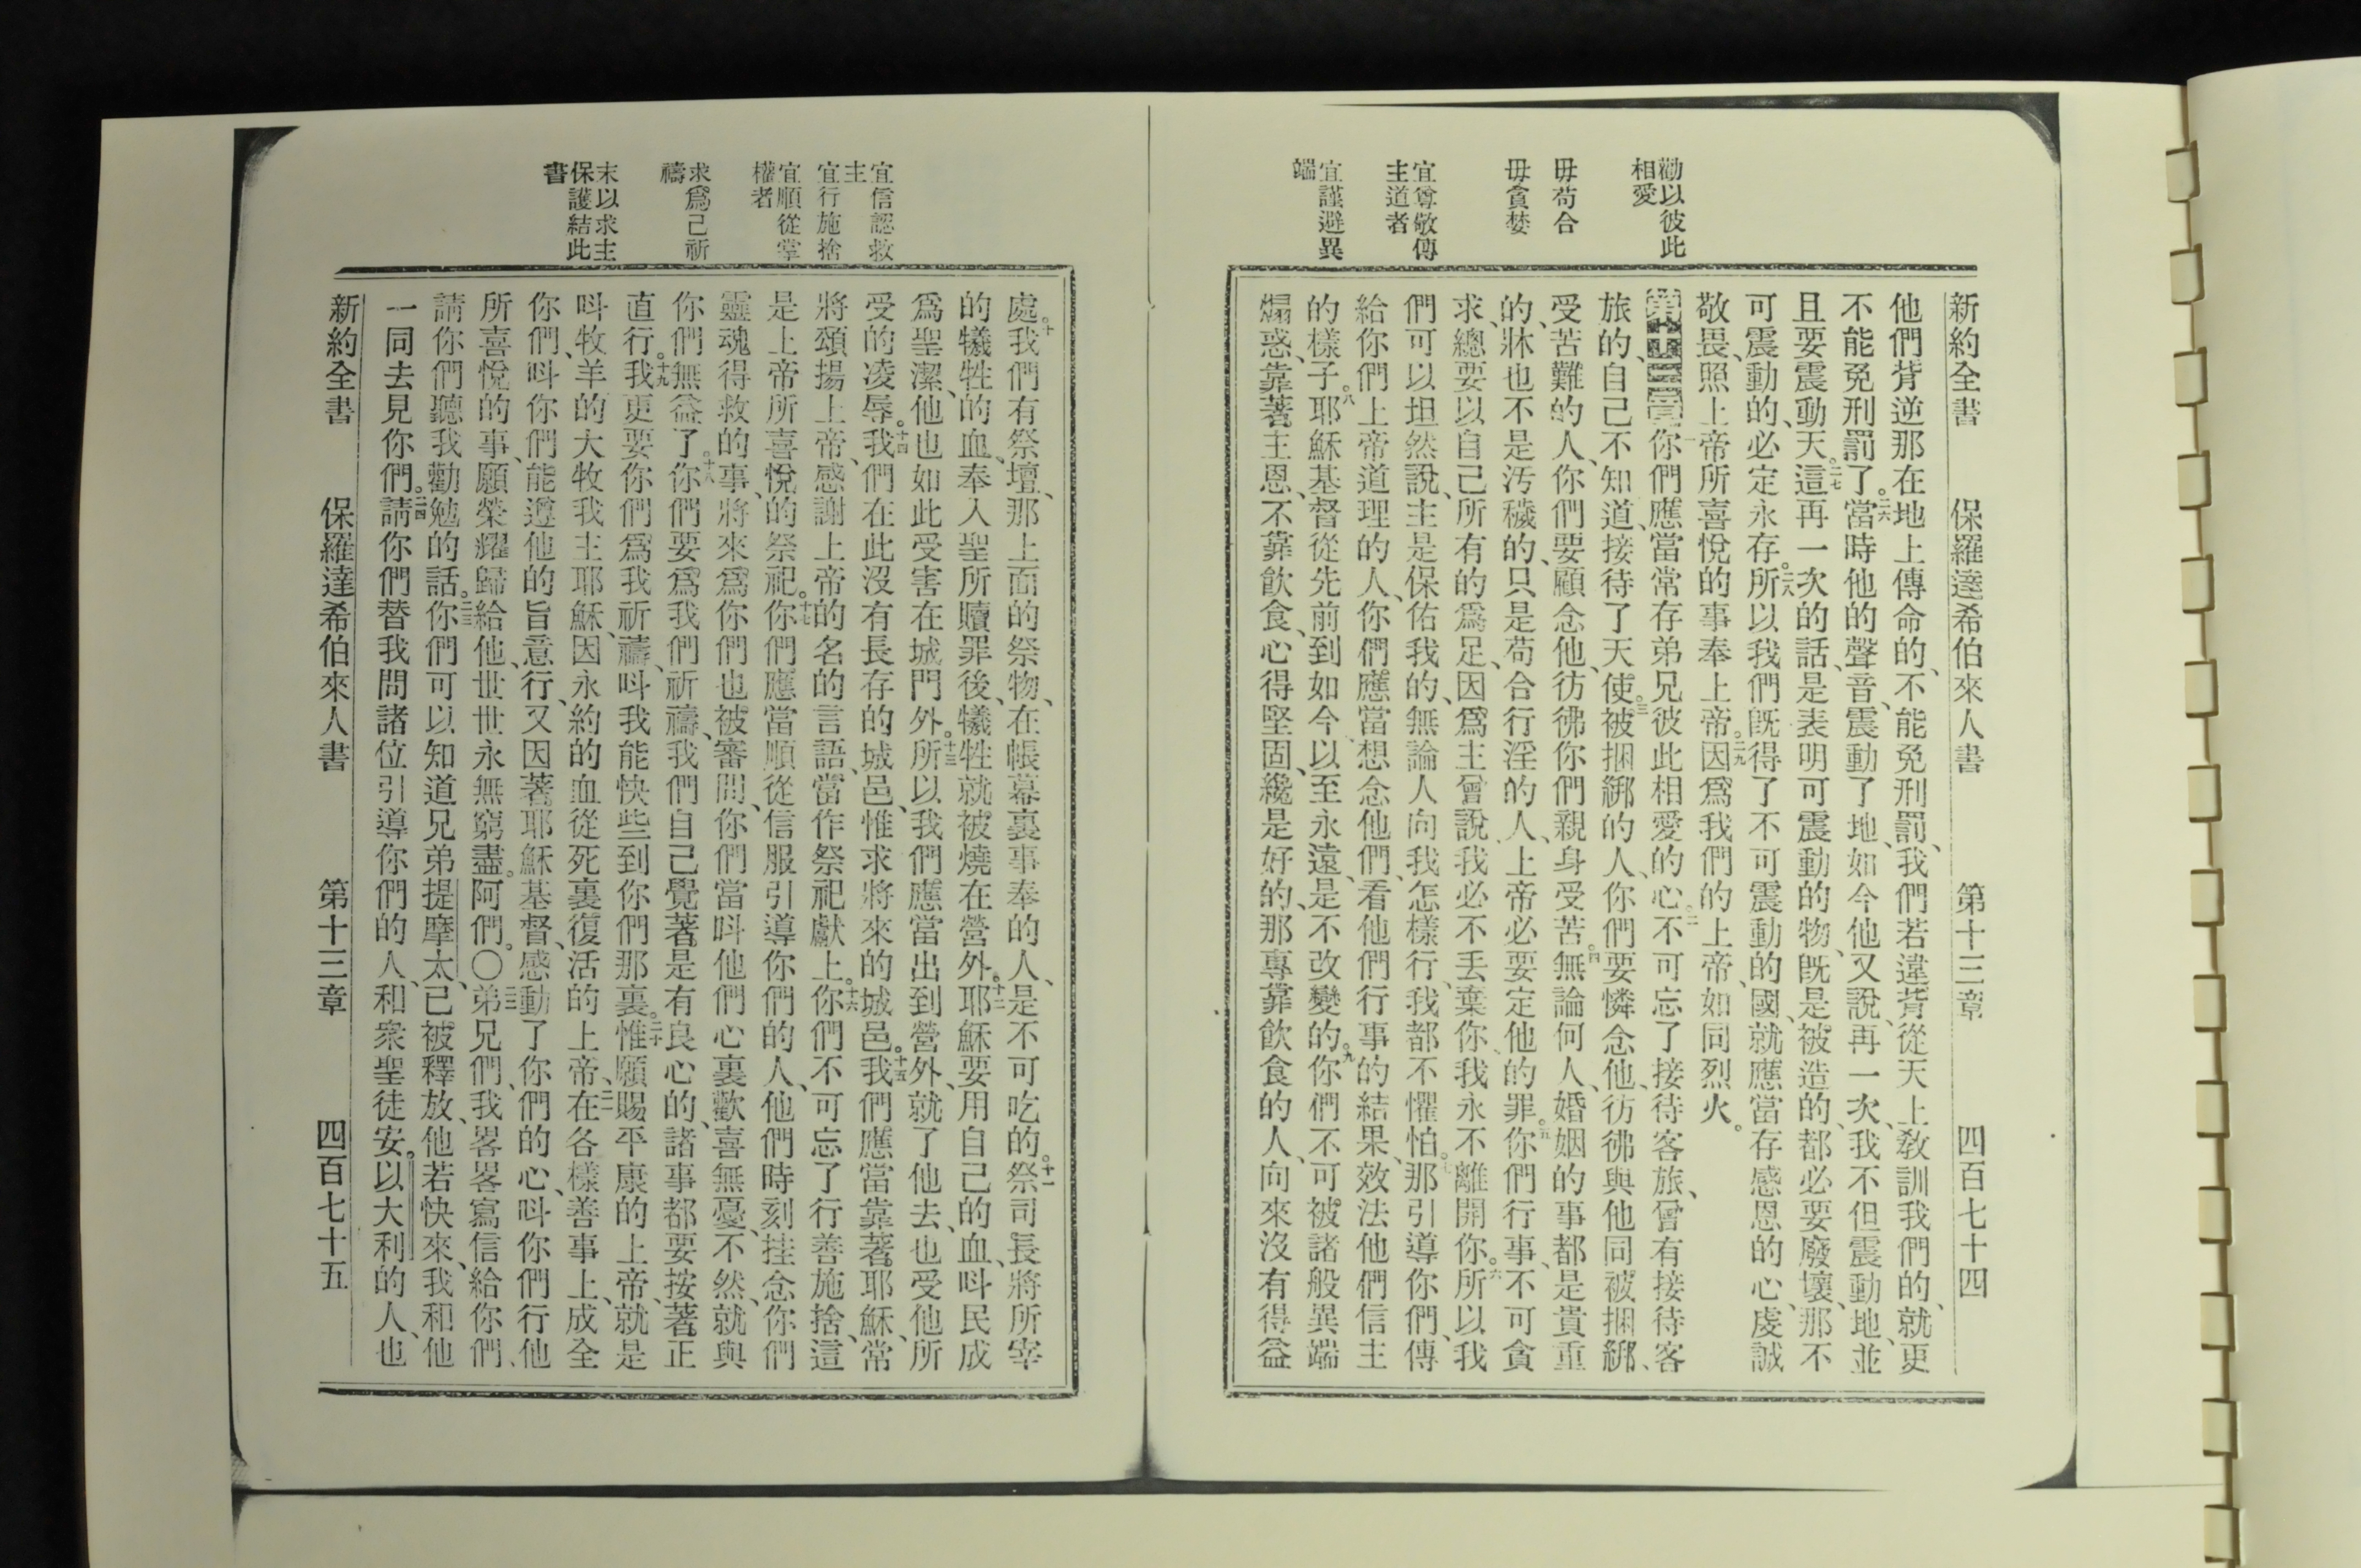 新約全書 保羅達希伯來人書 第十三章 四百七十四
勸以彼此
相愛
毋苟合
毋貪婪
宜尊敬傳
主道者
宜謹避異
端
他們背逆那在地上傳命的、不能免刑罰、我們若違背從天上教訓我們的、就更
不能免刑罰了。二六當時他的聲音、震動了地、如今他又說、再一次、我不但震動地、並
且要震動天。二七這再一次的話、是表明可震動的物、旣是被造的、都必要廢壞、那不
可震動的、必定永存。二八所以我們旣得了不可震動的國、就應當存感恩的心、虔誠
敬畏、照上帝所喜悅的事奉上帝。二九因爲我們的上帝、如同烈火。
第十三章一你們應當常存弟兄彼此相愛的心。二不可忘了接待客旅、曾有接待客
旅的、自己不知道、接待了天使。三被捆綁的人、你們要憐念他、彷彿與他同被捆綁、
受苦難的人、你們要顧念他、彷彿你們親身受苦。四無論何人、婚姻的事都是貴重
的、牀也不是汚穢的、只是苟合行淫的人、上帝必要定他的罪。五你們行事、不可貪
求、總要以自己所有的爲足、因爲主曾說、我必不丟棄你、我永不離開你。六所以我
們可以坦然說、主是保佑我的、無論人向我怎樣行、我都不懼怕。七那引導你們、傳
給你們上帝道理的人、你們應當想念他們、看他們行事的結果、效法他們信主
的樣子。八耶穌基督從先前到如今、以至永遠、是不改變的。九你們不可被諸般異端
煽惑、靠著主恩、不靠飲食、心得堅固、纔是好的、那專靠飲食的人、向來沒有得益
宜信認救
主
宜行施捨
宜順從掌
權者
求爲己祈
禱
末以求主
保護結此
書
處。十我們有祭壇、那上面的祭物、在帳幕裏事奉的人、是不可吃的。十一祭司長將所宰
的犧牲的血、奉入聖所贖罪後、犧牲就被燒在營外。十二耶穌要用自己的血、呌民成
爲聖潔、他也如此受害在城門外。十三所以我們應當出到營外、就了他去、也受他所
受的凌辱。十四我們在此沒有長存的城邑、惟求將來的城邑。十五我們應當靠著耶穌、常
將頌揚上帝、感謝上帝的名的言語、當作祭祀獻上。十六你們不可忘了行善施捨、這
是上帝所喜悅的祭祀。十七你們應當順從信服引導你們的人、他們時刻挂念你們
靈魂得救的事、將來爲你們也被審問、你們當呌他們心裏歡喜無憂、不然、就與
你們無益了。十八你們要爲我們祈禱、我們自己覺著是有良心的、諸事都要按著正
直行。十九我更要你們爲我祈禱、呌我能快些到你們那裏。二十惟願賜平康的上帝、就是
呌牧羊的大牧我主耶穌、因永約的血從死裏復活的上帝、二一在各樣善事上、成全
你們、呌你們能遵他的旨意行、又因著耶穌基督、感動了你們的心、呌你們行他
所喜悅的事、願榮耀歸給他、世世永無窮盡。阿們。〇二二弟兄們、我畧畧寫信給你們、
請你們聽我勸勉的話。二三你們可以知道兄弟提摩太、已被釋放、他若快來、我和他
一同去見你們。二四請你們替我問諸位引導你們的人、和衆聖徒安。以大利的人、也
新約全書 保羅達希伯來人書 第十三章 四百七十五